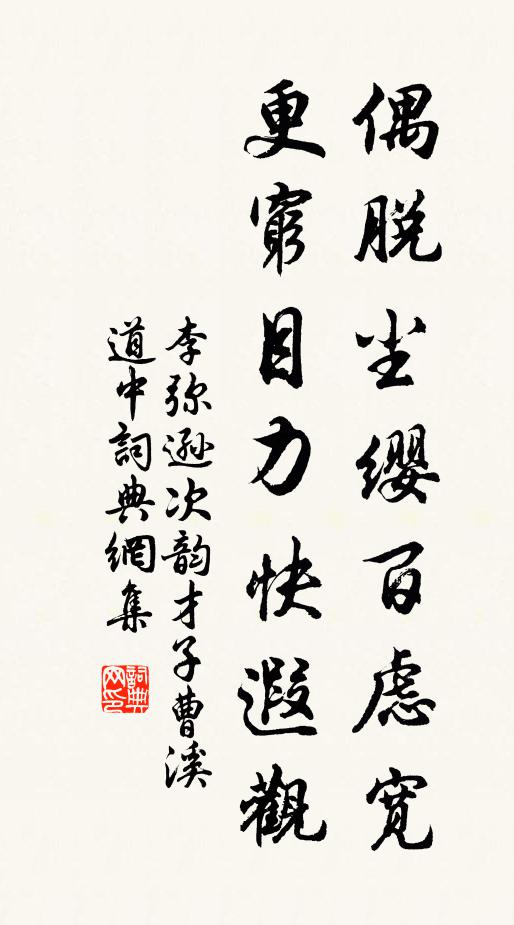 偶脱尘缨百慮寬
更窮目力快遐觀
李弥遜次韵才子曹溪
道中詞典網集
詞典网印